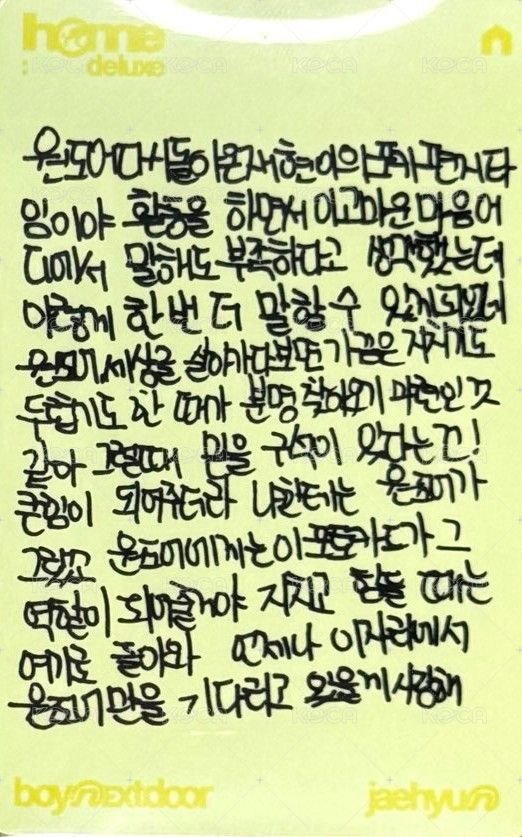 home
: deluxe
원도어 다시 돌아온 재현이의 포카 편지 타
임이야 활동을 하면서 이 고마운 마음 어
디에서 말해도 부족하다고 생각했는데
이렇게 한 번 더 말할 수 있게 되었네
원도어 세상을 살아가다보면 가끔은 지치기도
두렵기도 한 때가 분명 찾아오기 마련인 것
같아 그럴때 믿을 구석이 있다는 건!
큰힘이 되어주더라 나한테는 원도어가
그랬고 원도어에게는 이 포토카드가 그
역할이 되어줄거야 지치고 힘들 때는
여기로 돌아와 언제나 이자리에서
원도어만을 기다리고 있을게 사랑해
boynextdoor
jaehyun
KOCA